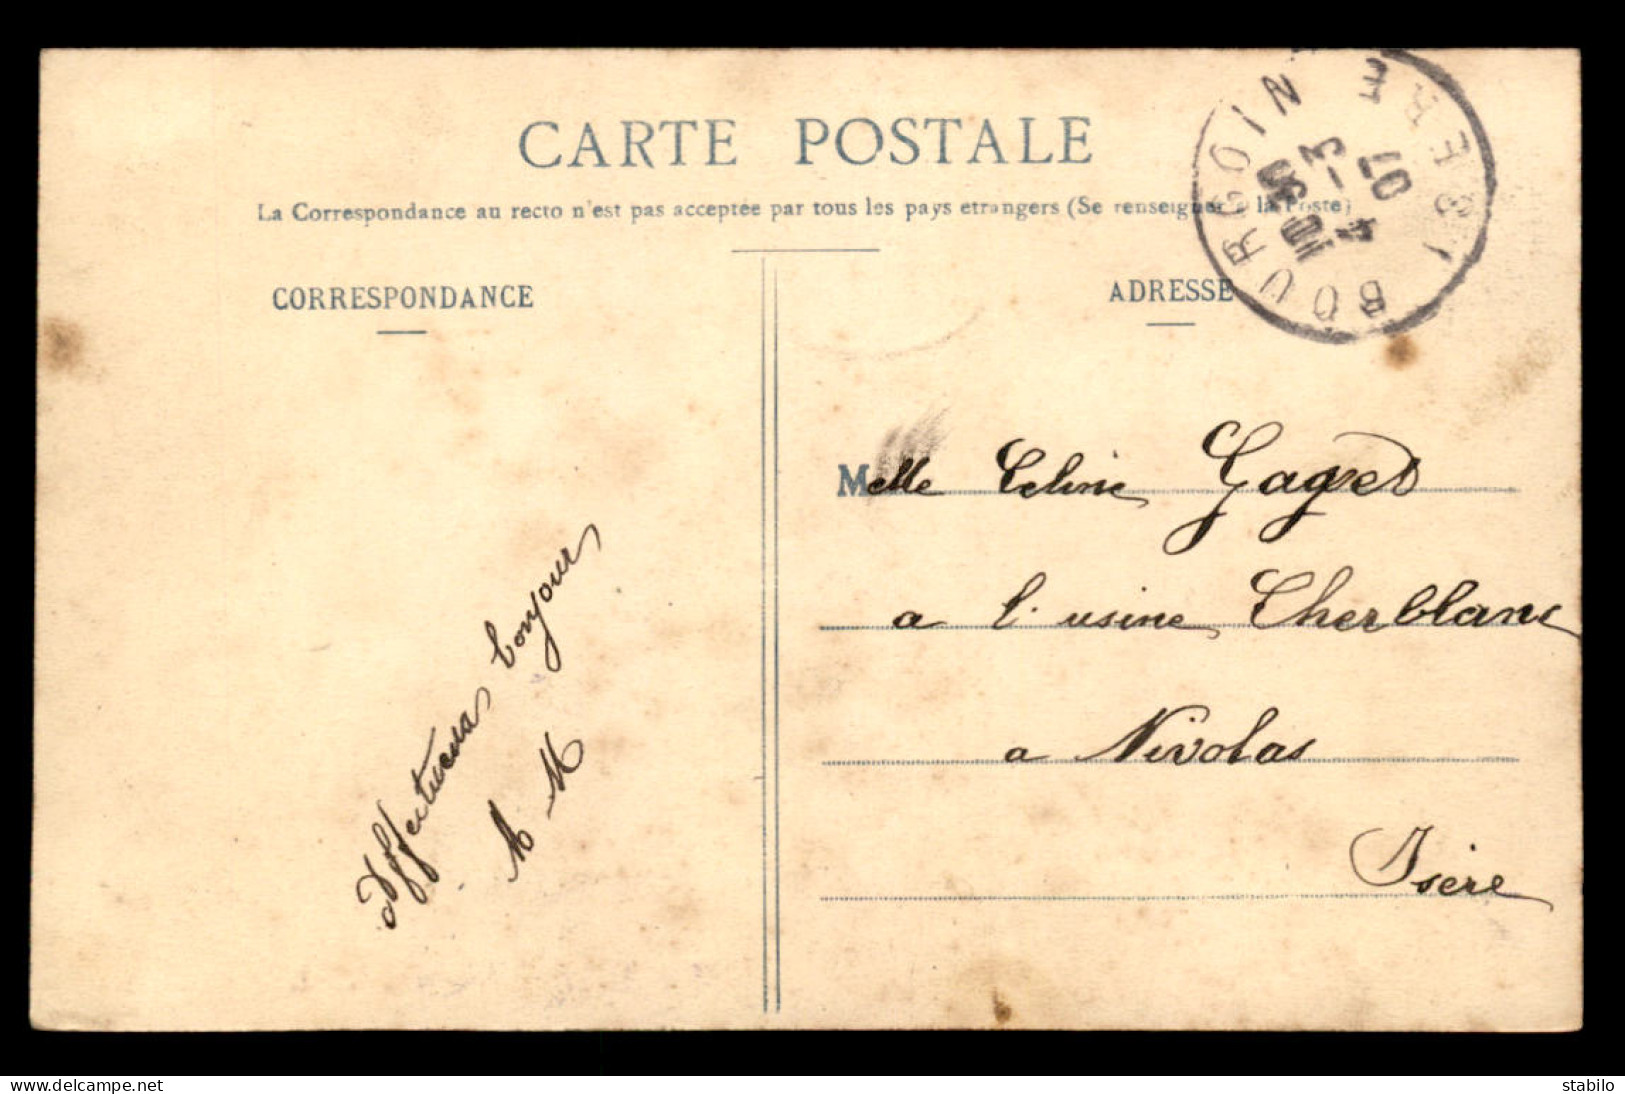 CARTE POSTALE
La Correspondance au recto n'est pas acceptée par tous les pays etrangers (Se renseigner à la Poste)
CORRESPONDANCE
ADRESSE
BOURGOIN ISERE
4 -3
07
Melle Celine Gaget
a l'usine Cherblanc
a Nivolas
Isère
Affectueux bonjour
M M
delcampe.net
stabilo